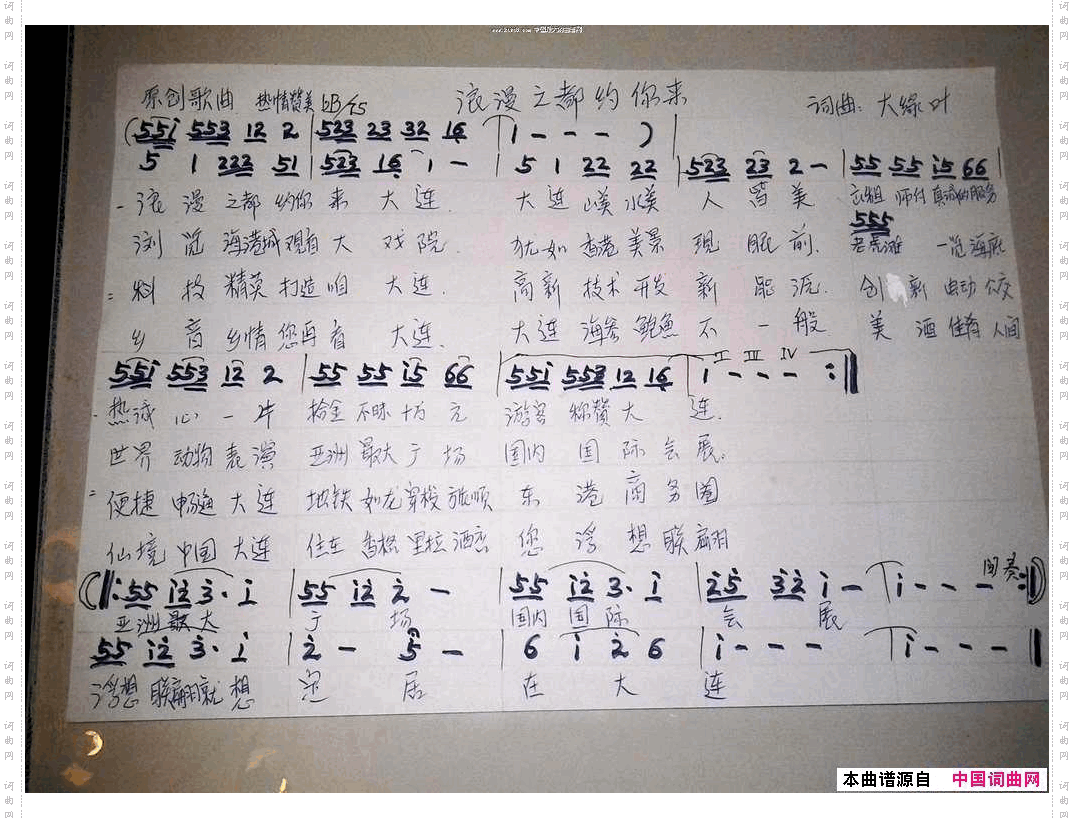 原创歌曲 热情赞美 bB 4/5 浪漫之都约你来 词曲: 大绿叶
(551 553 12 2 | 523 23 32 16 | 1 - - - ) |
5 1 222 51 | 523 16 1 - | 5 1 22 22 | 523 23 2 - | 55 55 i5 66 |
一浪漫之都约你来大连. 大连山美水美人皆美 出租师付真诚的服务
555
浏览海港城观看大戏院. 犹如香港美景现眼前. 老虎滩一览海底
= 科技精英打造咱大连. 高新技术开发新能源. 创新电动公交
乡音乡情您再看大连. 大连海参鲍鱼不一般 美酒佳肴人间
55i 553 12 2 | 55 55 i5 66 | 55i 553 12 16 | 1 - - - :|
II III IV
热诚心一牛 拾金不昧十万元 游客称赞大连.
世界动物表演 亚洲最大广场 国内国际会展.
= 便捷畅通大连 地铁如龙穿梭旅顺 东港商务圈
仙境中国大连 住在香格里拉酒店 您浮想联翩
间奏
(|: 55 i2 3· i | 55 i2 2 - | 55 i2 3· i | 25 32 i - | i - - - :|)
亚洲最大广场 国内国际会展
55 i2 3· i | 2 - 5 - | 6 i 2 6 | i - - - | i - - - |
浮想联翩就想定居在大连
本曲谱源自 中国词曲网
词曲网